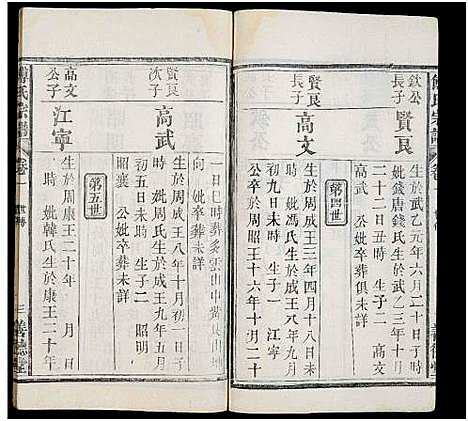 欽公
長子
賢良
生於武乙元年六月二十日子時
妣錢唐錢氏生於武乙三年十月
二十二日丑時 生子二 高文
高武 公妣卒葬俱未詳
第四世
賢良
長子
高文
生於周成王三年四月十八日未
時 妣馮氏生於成王八年九月
初九日未時 生子一 江寧
公卒於康王十六年十二月十
一日巳時葬多雲山中黃
向 妣卒葬未詳
賢良
次子
高武
生於周成王八年十月初一日子
時 妣周氏生於成王九年五月
初五日未時 生子二 昭明
昭襄 公妣卒葬未詳
第五世
高文
公子
江寧
生於周康王二十年 月 日
時 妣韓氏生於康王二十年
傅氏宗譜
卷一
三